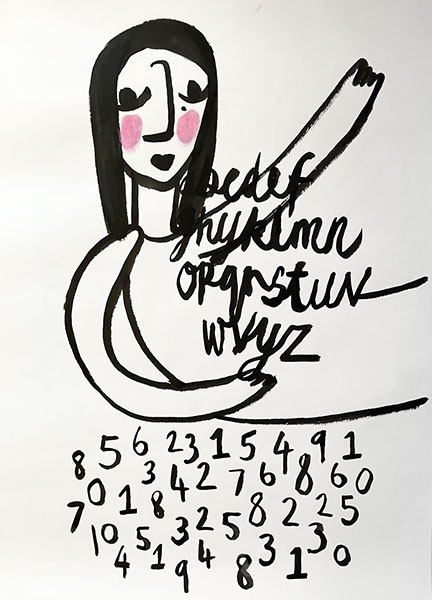 abcdef
ghijklmn
opqrstuv
wxyz
8 5 6 2 3 1 5 4 9 1
3 4 2 7 6 8 6 0
7 0 1 8 3 2 5 8 2 2 5
10 4 5 1 9 4 8 3 1 3 0